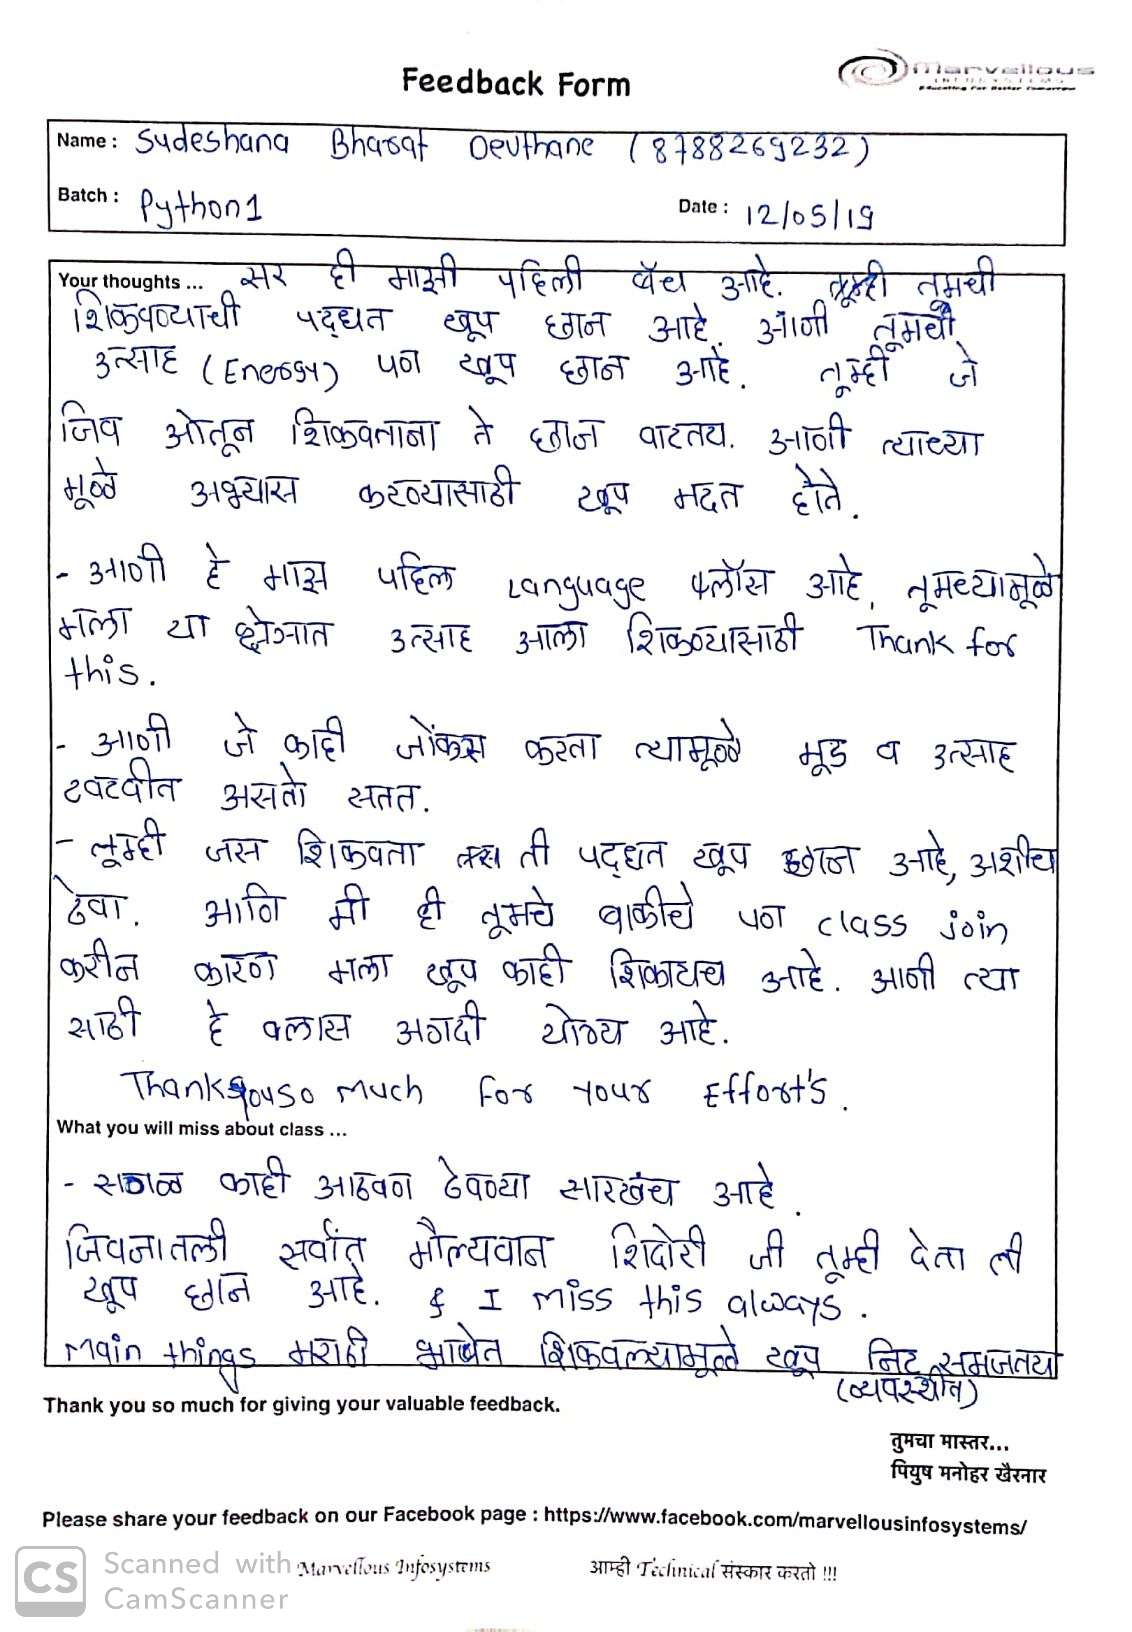 Marvellous
INFOSYSTEMS
Educating For Better Tomorrow
Feedback Form
Name : Sudeshana Bharat Deuthane (8788269232)
Batch : Python1
Date : 12/05/19
Your thoughts ... सर ही माझी पहिली बॅच आहे. तूम्ही तूमची
शिकवण्याची पद्धत खूप छान आहे. आणी तूमची
उत्साह (Energy) पण खूप छान आहे. तूम्ही जे
जिव ओतून शिकवताना ते छान वाटतय. आणी त्याच्या
मूळे अभ्यास करण्यासाठी खूप मदत होते.
- आणी हे माझ पहिल Language क्लॉस आहे, तूमच्यामूळे
मला या क्षेत्रात उत्साह आला शिकण्यासाठी Thank for
this.
- आणी जे काही जोंकस करता त्यामूळे मूड व उत्साह
टवटवीत असतो सतत.
- तूम्ही जस शिकवता ती पद्धत खूप छान आहे, अशीच
ठेवा. आणि मी ही तूमचे बाकीचे पण class join
करीन कारण मला खूप काही शिकायच आहे. आणी त्या
साठी हे क्लास अगदी योग्य आहे.
Thank you so much for your Effort's.
What you will miss about class ...
- सगळ काही आठवण ठेवण्या सारखंच आहे.
जिवनातली सर्वात मौल्यवान शिदोरी जी तूम्ही देता ती
खूप छान आहे. & I miss this always.
Main things मराठी भाषेत शिकवल्यामूळे खूप निट समजतय
(व्यवस्थीत)
Thank you so much for giving your valuable feedback.
तुमचा मास्तर...
पियुष मनोहर खैरनार
Please share your feedback on our Facebook page : https://www.facebook.com/marvellousinfosystems/
Marvellous Infosystems आम्ही Technical संस्कार करतो !!!
CS Scanned with
CamScanner